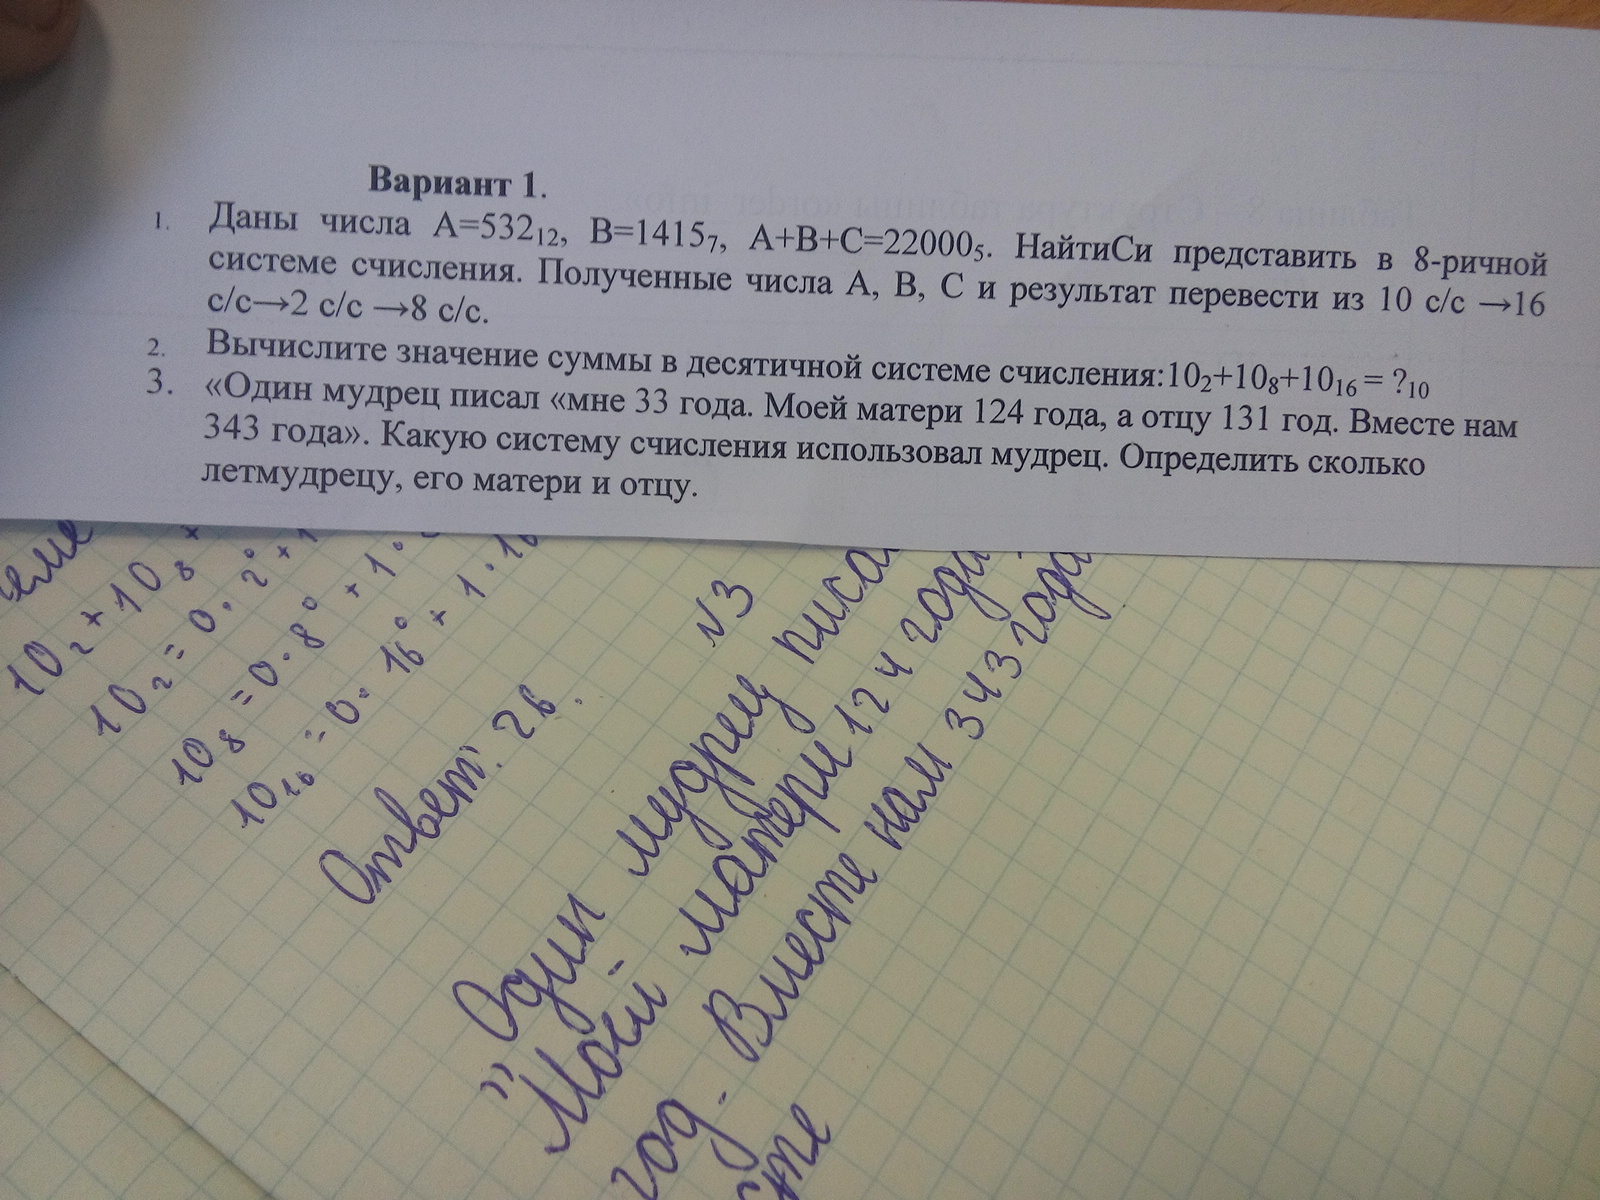 Вариант 1.
1. Даны числа А=532₁₂, В=1415₇, А+В+С=22000₅. НайтиСи представить в 8-ричной
системе счисления. Полученные числа А, В, С и результат перевести из 10 с/с →16
с/с→2 с/с →8 с/с.
2. Вычислите значение суммы в десятичной системе счисления:10₂+10₈+10₁₆ = ?₁₀
3. «Один мудрец писал «мне 33 года. Моей матери 124 года, а отцу 131 год. Вместе нам
343 года». Какую систему счисления использовал мудрец. Определить сколько
летмудрецу, его матери и отцу.
10₂+10₈+
10₂=0·2⁰+1
10₈=0·8⁰+1·
10₁₆=0·16⁰+1·16
Ответ: 26.
№3
Один мудрец писал
"Моей матери 124 года
год. Вместе нам 343 года